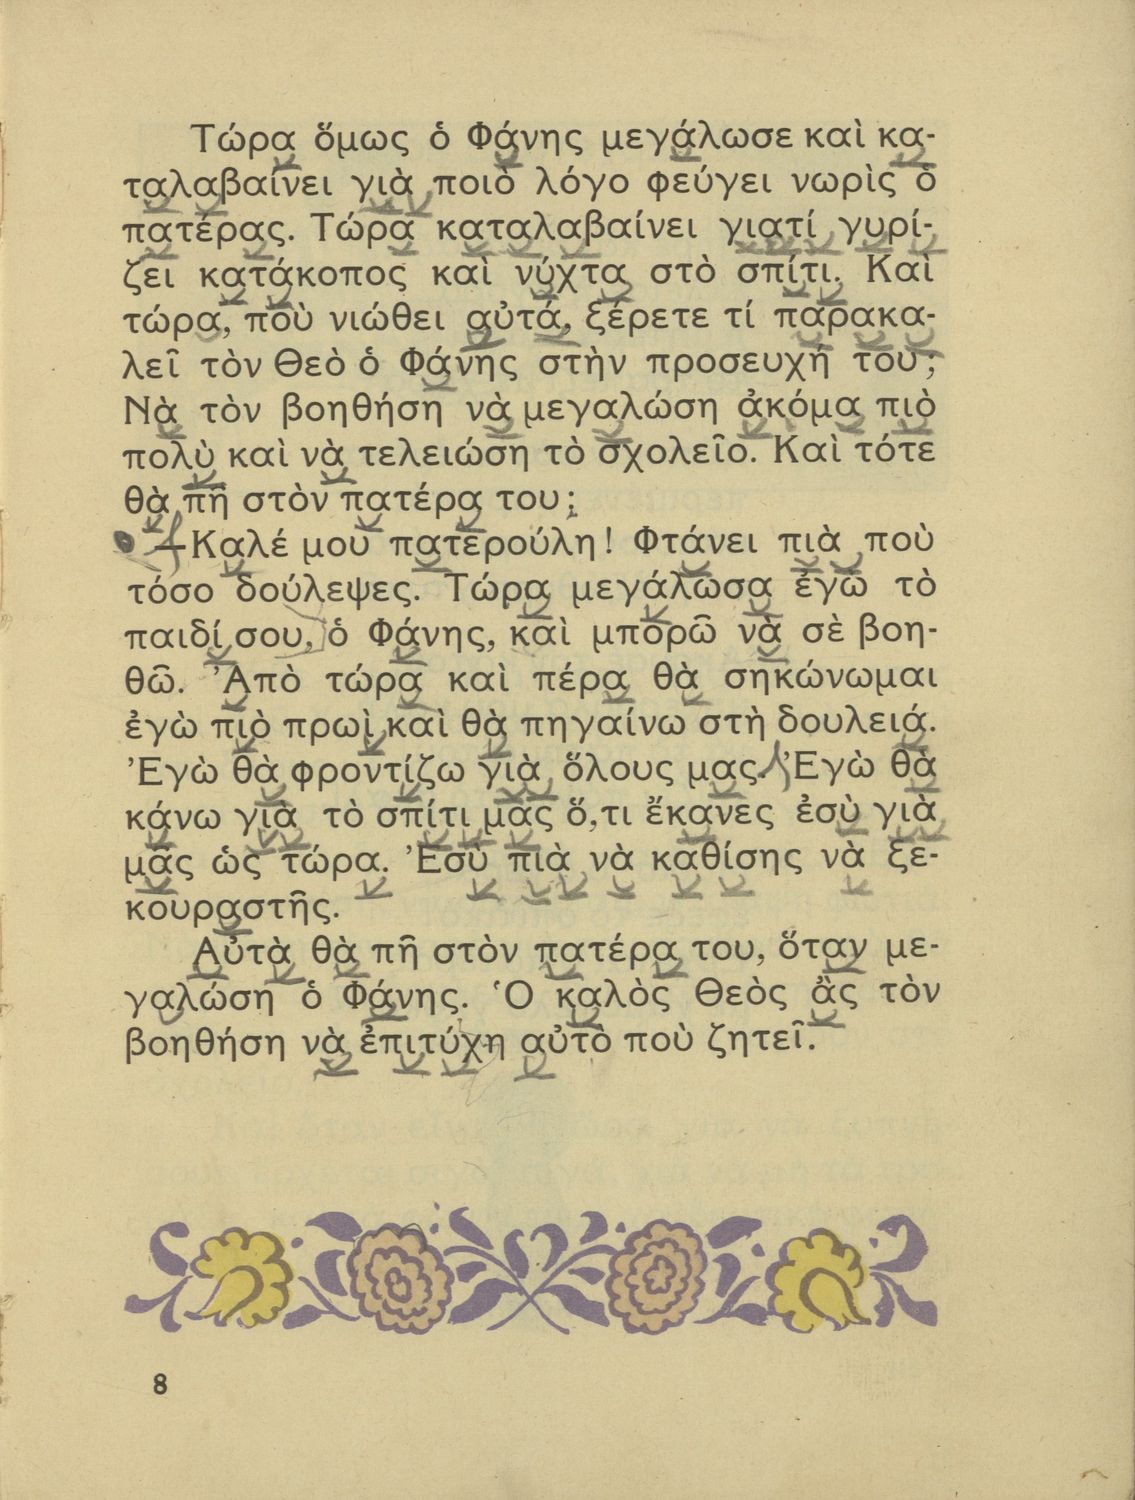 Τώρα ὅμως ὁ Φάνης μεγάλωσε καὶ κα-
ταλαβαίνει γιὰ ποιὸ λόγο φεύγει νωρὶς ὁ
πατέρας. Τώρα καταλαβαίνει γιατί γυρί-
ζει κατάκοπος καὶ νύχτα στὸ σπίτι. Καὶ
τώρα, ποὺ νιώθει αὐτά, ξέρετε τί παρακα-
λεῖ τὸν Θεὸ ὁ Φάνης στὴν προσευχή του;
Νὰ τὸν βοηθήση νὰ μεγαλώση ἀκόμα πιὸ
πολὺ καὶ νὰ τελειώση τὸ σχολεῖο. Καὶ τότε
θὰ πῆ στὸν πατέρα του:
—Καλέ μου πατερούλη! Φτάνει πιὰ ποὺ
τόσο δούλεψες. Τώρα μεγάλωσα ἐγὼ τὸ
παιδί σου, ὁ Φάνης, καὶ μπορῶ νὰ σὲ βοη-
θῶ. Ἀπὸ τώρα καὶ πέρα θὰ σηκώνωμαι
ἐγὼ πιὸ πρωὶ καὶ θὰ πηγαίνω στὴ δουλειά.
Ἐγὼ θὰ φροντίζω γιὰ ὅλους μας. Ἐγὼ θὰ
κάνω γιὰ τὸ σπίτι μας ὅ,τι ἔκανες ἐσὺ γιὰ
μᾶς ὡς τώρα. Ἐσὺ πιὰ νὰ καθίσης νὰ ξε-
κουραστῆς.
Αὐτὰ θὰ πῆ στὸν πατέρα του, ὅταν με-
γαλώση ὁ Φάνης. Ὁ καλὸς Θεὸς ἂς τὸν
βοηθήση νὰ ἐπιτύχη αὐτὸ ποὺ ζητεῖ.
8